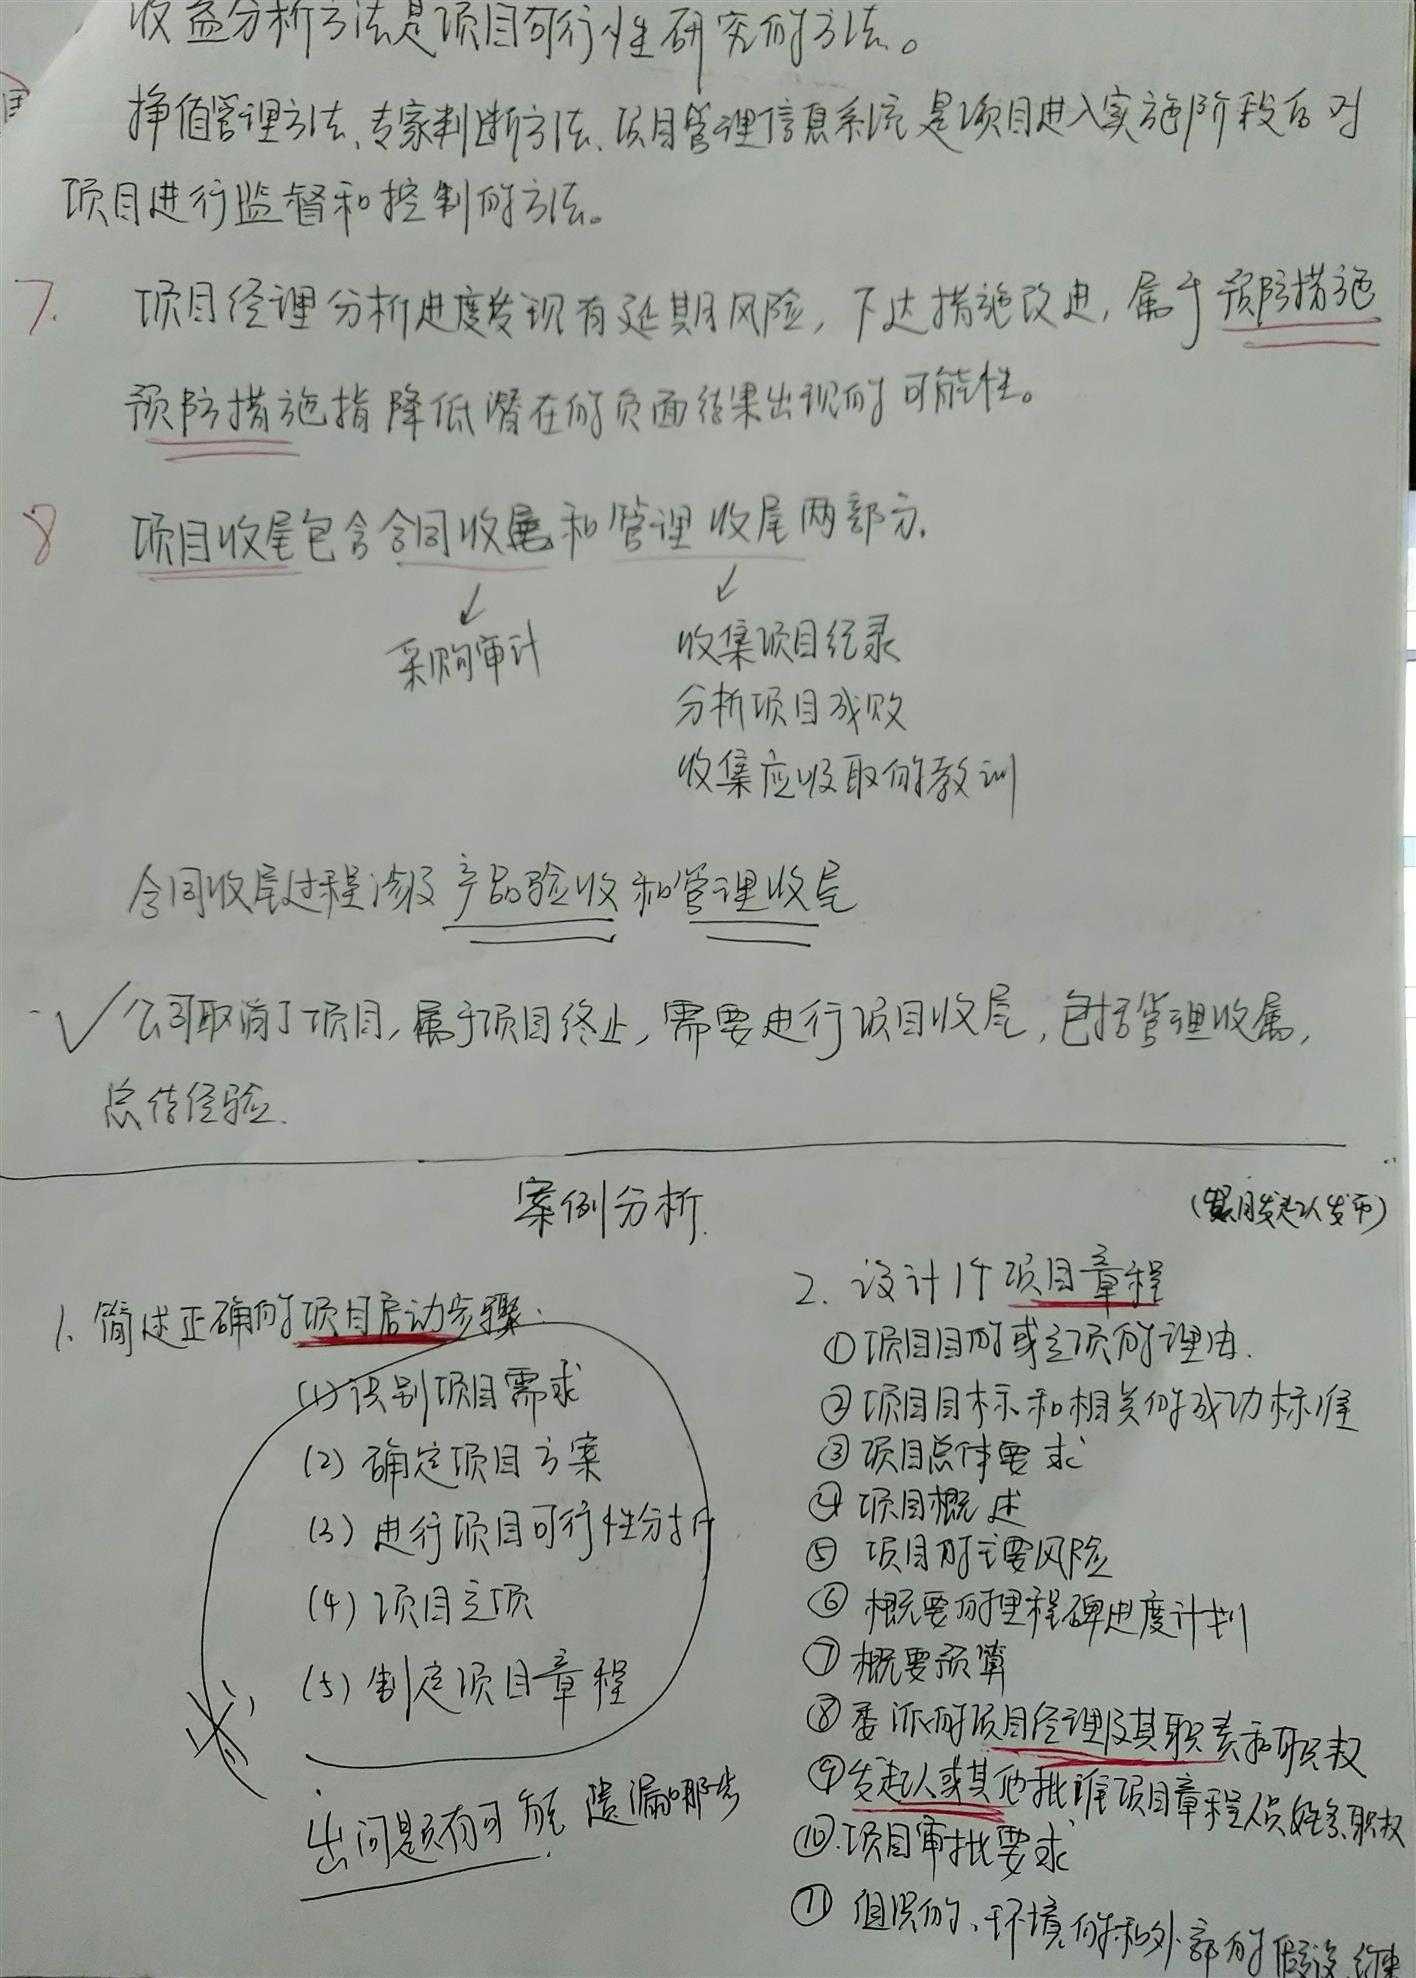 收益分析方法是项目可行性研究的方法。
挣值管理方法、专家判断方法、项目管理信息系统是项目进入实施阶段后对
项目进行监督和控制的方法。
7. 项目经理分析进度发现有延期风险,下达措施改进,属于预防措施
预防措施指降低潜在的负面结果出现的可能性。
8 项目收尾包含合同收尾和管理收尾两部分.
采购审计
收集项目纪录
分析项目成败
收集应吸取的教训
合同收尾过程涉及产品验收和管理收尾
√公司取消了项目,属于项目终止,需要进行项目收尾,包括管理收尾,
总结经验.
案例分析.
1. 简述正确的项目启动步骤:
(1)识别项目需求
(2)确定项目方案
(3)进行项目可行性分析
(4)项目立项
(5)制定项目章程
出问题有可能遗漏哪步
(项目发起人发布)
2. 设计1个项目章程
①项目目的或立项的理由.
②项目目标和相关的成功标准
③项目总体要求
④项目概述
⑤项目的主要风险
⑥概要的里程碑进度计划
⑦概要预算
⑧委派的项目经理及其职责和职权
⑨发起人或其他批准项目章程人员姓名、职权
⑩.项目审批要求
⑪组织的、环境的和外部的假设、约束